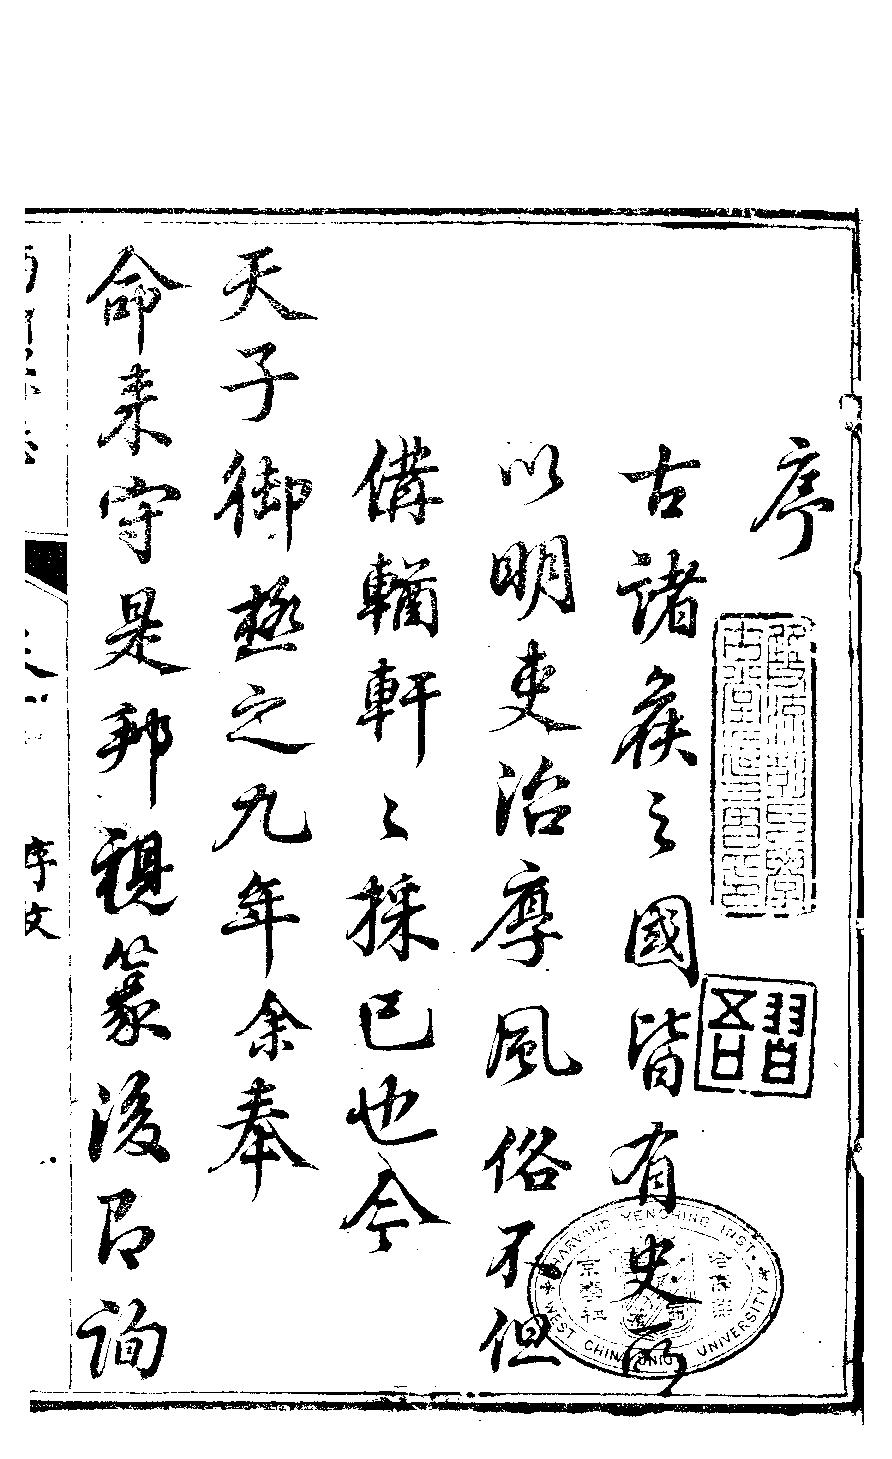 序
古諸矦之國皆有史所
以明吏治厚風俗不但
備輶軒之採已也今
天子御極之九年余奉
命来守是邦視篆後即詢
序文
HARVARD YENCHING INST.
WEST CHINA UNION UNIVERSITY